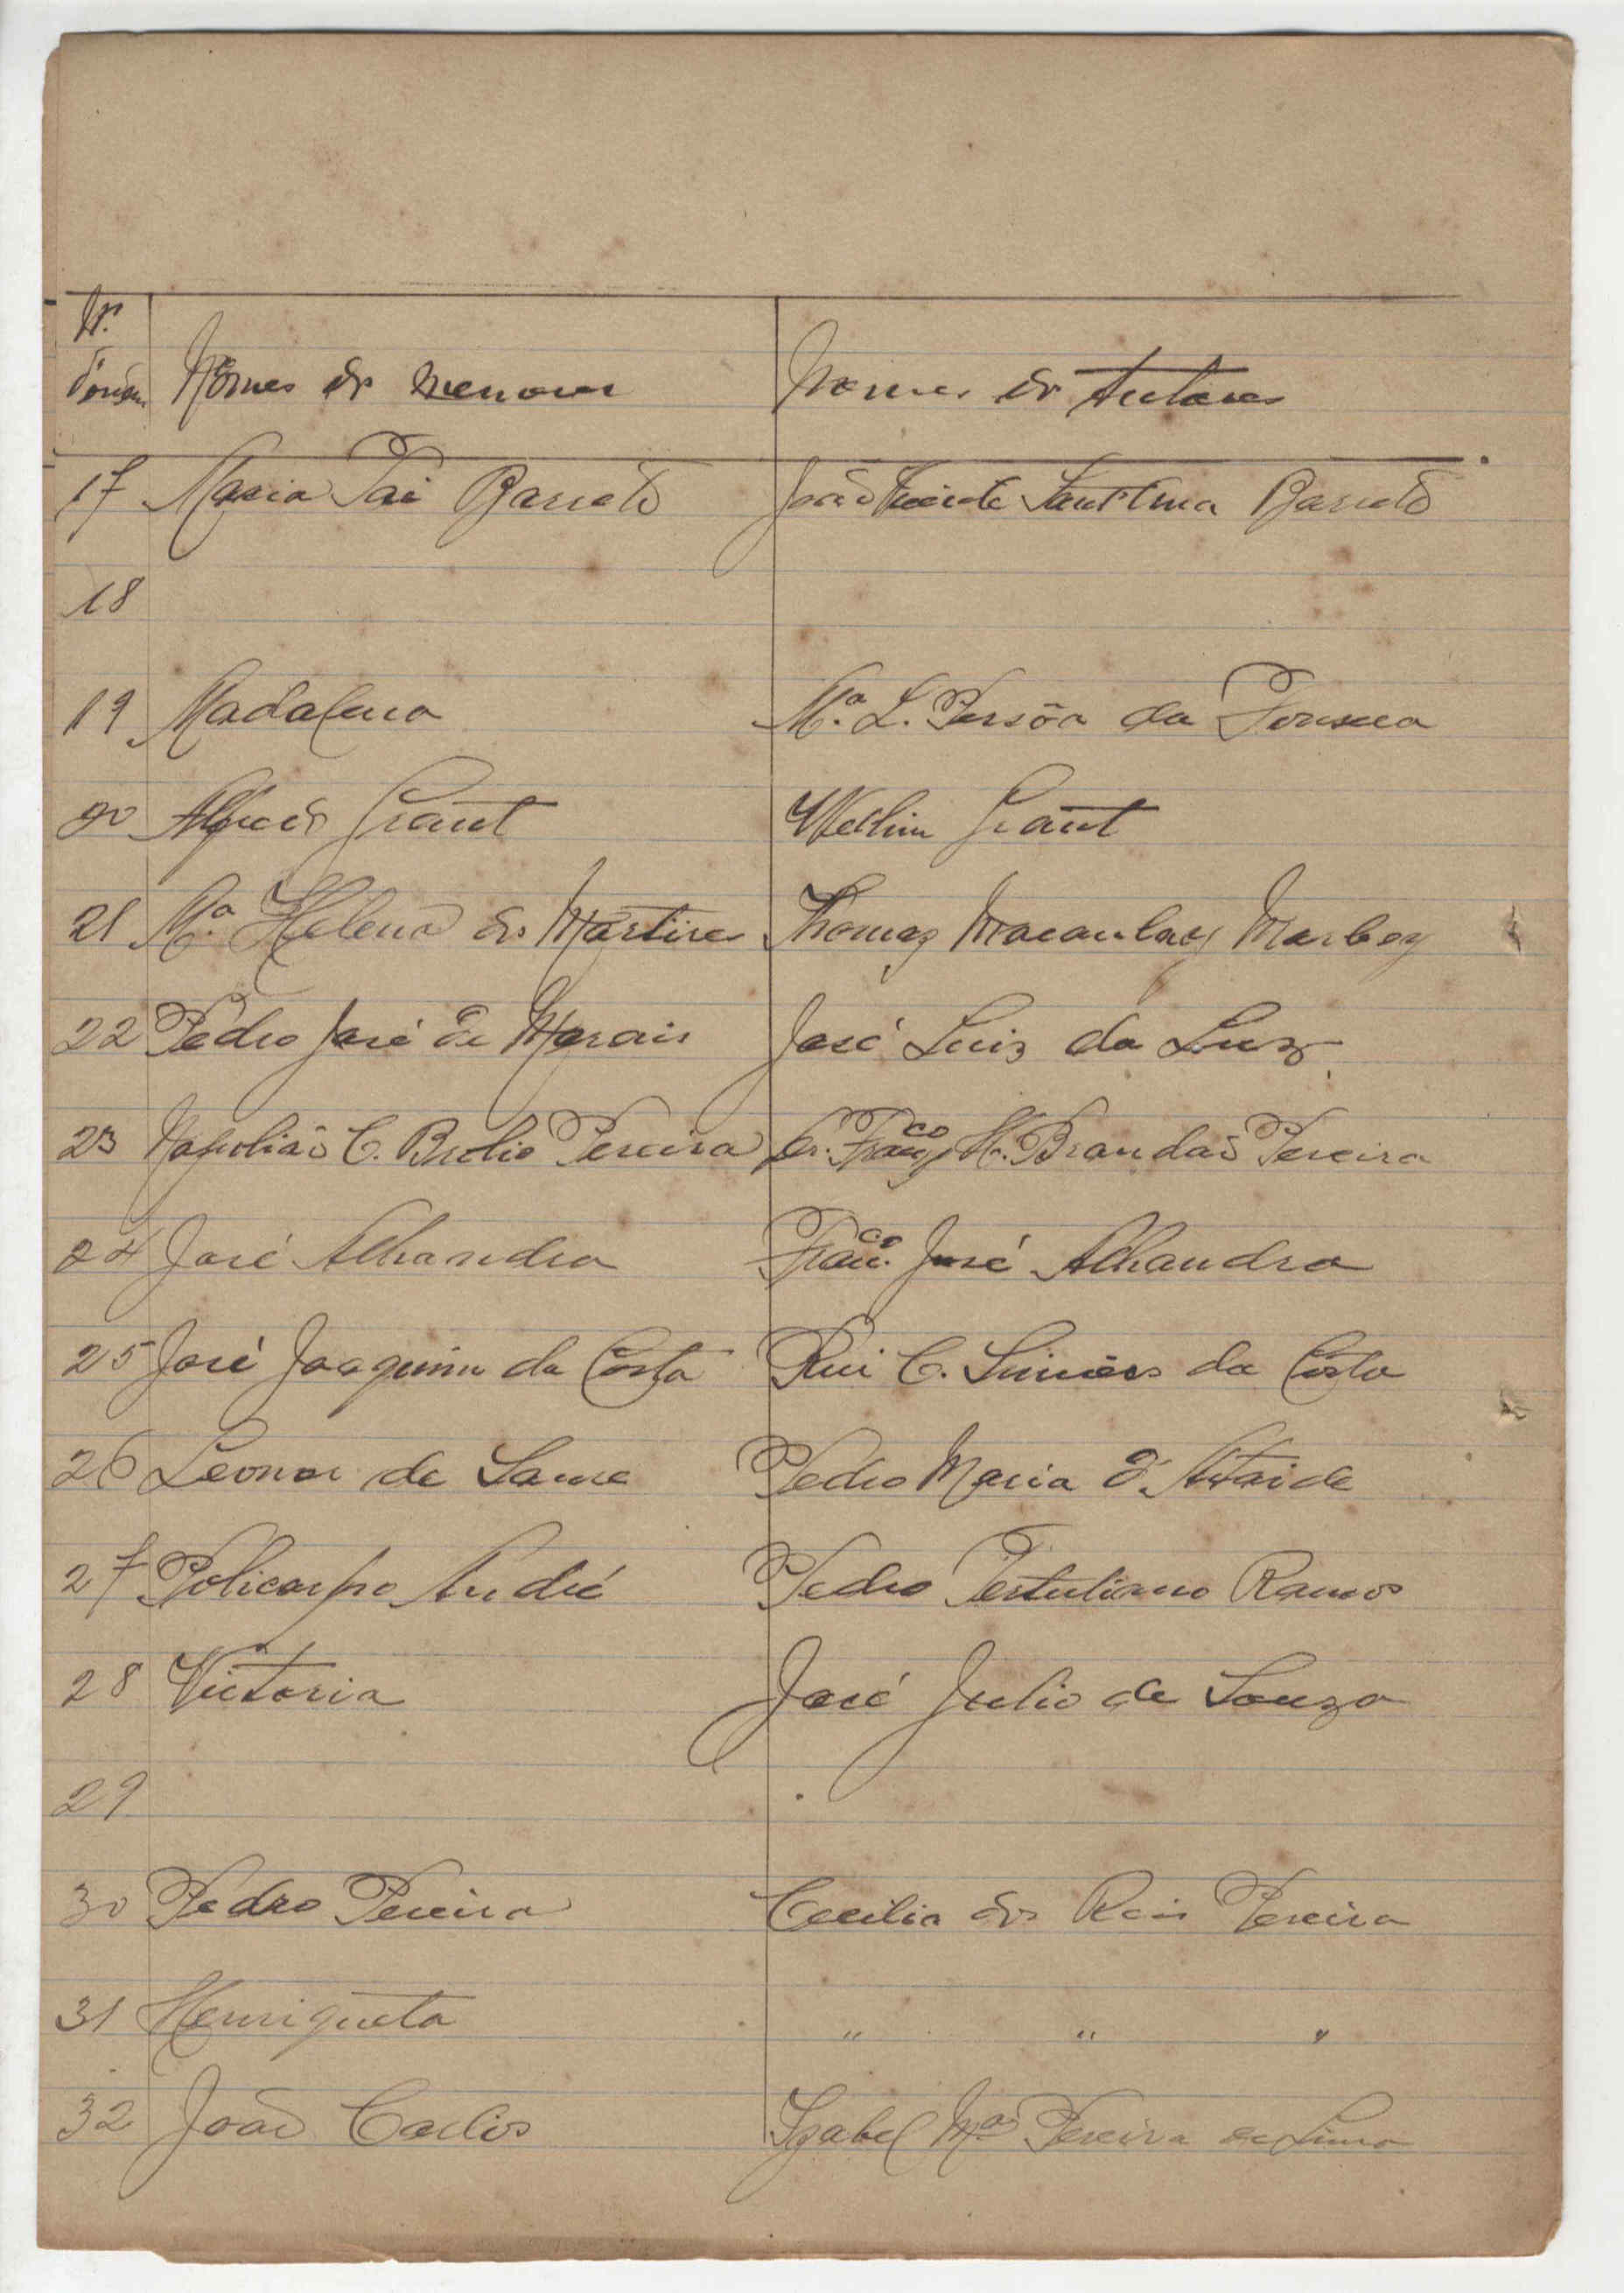 Nº
d'ordem Nomes dos menores Nomes dos tutores
17 Maria Pai Barreto João Vicente Sant'Anna Barreto
18
19 Madalena Mª. L. Persôa da Fonseca
20 Alfredo Grant Grant
21 Mª Helena dos Martires Thomaz Macaulay Marbey
22 Pedro José de Morais José Luiz da Luz
23 Napolião C. Brolio Pereira Dr. Francº H. Brandão Pereira
24 José Alhandra Francº. José Alhandra
25 José Joaquim da Costa Rui C. Simões da Costa
26 Leonor de Same Pedro Maria d'Ataide
27 Policarpo André Pedro Tertuliano Ramos
28 Victoria José Julio de Souza
29
30 Pedro Pereira Cecilia dos Reis Pereira
31 Henriqueta " " "
32 João Carlos Izabel Mª Pereira de Lima